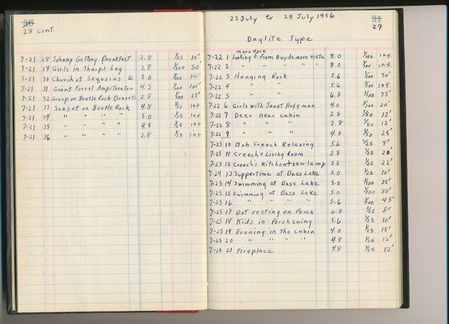 28 cont.
7-21 28 Johnny Getting Breakfast 2.8 1/25 10'
7-21 29 Girls in Tharps Log 2.8 1/100 50
7-21 30 Church of Sequoias 5.6 1/100 100'
7-21 31 Giant Forest Ampitheater 4.5 1/100 100'
7-21 32 Group on Beetle Rock 2.8 1/100 25'
7-21 33 Sunset on Beetle Rock 4.8 inf
7-21 34 " " " " 5.0 1/25 inf
7-21 35 " " " " 4.5 1/25 inf
7-21 36 " " " " 2.8 1/25 inf
22 July to 25 July 1956
29
Daylite Type
moro Rock
7-22 1 Looking E. from Boyds more Vista 8.0 1/100 inf
7-22 2 " " " 8.0 1/100 inf
7-22 3 Hanging Rock 5.6 1/100 50'
7-22 4 " " 5.6 1/100 50'
7-22 5 " " 6.8 1/100 75'
7-22 6 Girls with Janet Huffsman 4.0 1/100 20'
7-22 7 Deer near cabin 2.8 12'
7-22 8 " " " 2.8 12'
7-22 9 " " " 4.0 25'
7-23 10 Bob Creech Relaxing 5.6 1/25 5'
7-23 11 Creech's Living Room 2.8 1/25 20'
7-23 12 Creech's Kitchen + sew lamp 2.8 1/25 22'
7-24 13 Suppertime at Bass Lake 5.0 1/25 10'
7-25 14 Swimming at Bass Lake 5.6 1/100 35'
7-25 15 Swimming at Bass Lake 5.0 1/100 35'
7-25 16 " " " " 5.6 1/100 45'
7-25 17 Dot resting on Porch 6.3 1/25 8'
7-25 18 Kids in Porch swing 5.6 1/25 10'
7-25 19 Evening in the cabin 4.0 1/25 15'
7-25 20 " " " " 4.8 1/25 12'
7-25 21 Fireplace 4.8 1/25 12'